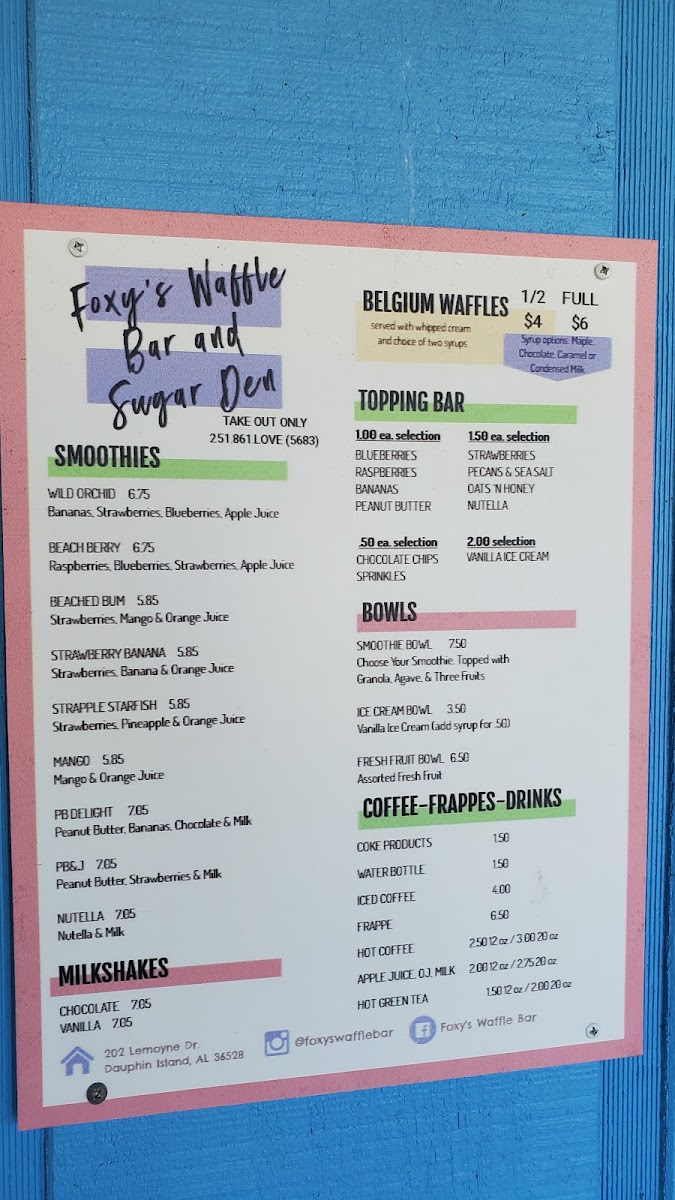 Foxy's Waffle
Bar and
Sugar Den
TAKE OUT ONLY
251.861.LOVE (5683)
SMOOTHIES
WILD ORCHID 6.75
Bananas, Strawberries, Blueberries, Apple Juice
BEACH BERRY 6.75
Raspberries, Blueberries, Strawberries, Apple Juice
BEACHED BUM 5.85
Strawberries, Mango & Orange Juice
STRAWBERRY BANANA 5.85
Strawberries, Banana & Orange Juice
STRAPPLE STARFISH 5.85
Strawberries, Pineapple & Orange Juice
MANGO 5.85
Mango & Orange Juice
PB DELIGHT 7.05
Peanut Butter, Bananas, Chocolate & Milk
PB&J 7.05
Peanut Butter, Strawberries & Milk
NUTELLA 7.05
Nutella & Milk
MILKSHAKES
CHOCOLATE 7.05
VANILLA 7.05
BELGIUM WAFFLES 1/2 FULL
$4 $6
served with whipped cream
and choice of two syrups
Syrup options: Maple,
Chocolate, Caramel or
Condensed Milk
TOPPING BAR
1.00 ea. selection
BLUEBERRIES
RASPBERRIES
BANANAS
PEANUT BUTTER
1.50 ea. selection
STRAWBERRIES
PECANS & SEA SALT
OATS 'N HONEY
NUTELLA
.50 ea. selection
CHOCOLATE CHIPS
SPRINKLES
2.00 selection
VANILLA ICE CREAM
BOWLS
SMOOTHIE BOWL 7.50
Choose Your Smoothie. Topped with
Granola, Agave, & Three Fruits
ICE CREAM BOWL 3.50
Vanilla Ice Cream (add syrup for .50)
FRESH FRUIT BOWL 6.50
Assorted Fresh Fruit
COFFEE-FRAPPES-DRINKS
COKE PRODUCTS 1.50
WATER BOTTLE 1.50
ICED COFFEE 4.00
FRAPPE 6.50
HOT COFFEE 2.50 12 oz / 3.00 20 oz
APPLE JUICE, O.J. MILK 2.00 12 oz / 2.75 20 oz
HOT GREEN TEA 1.50 12 oz / 2.00 20 oz
202 Lemoyne Dr.
Dauphin Island, AL 36528
@foxyswafflebar
Foxy's Waffle Bar